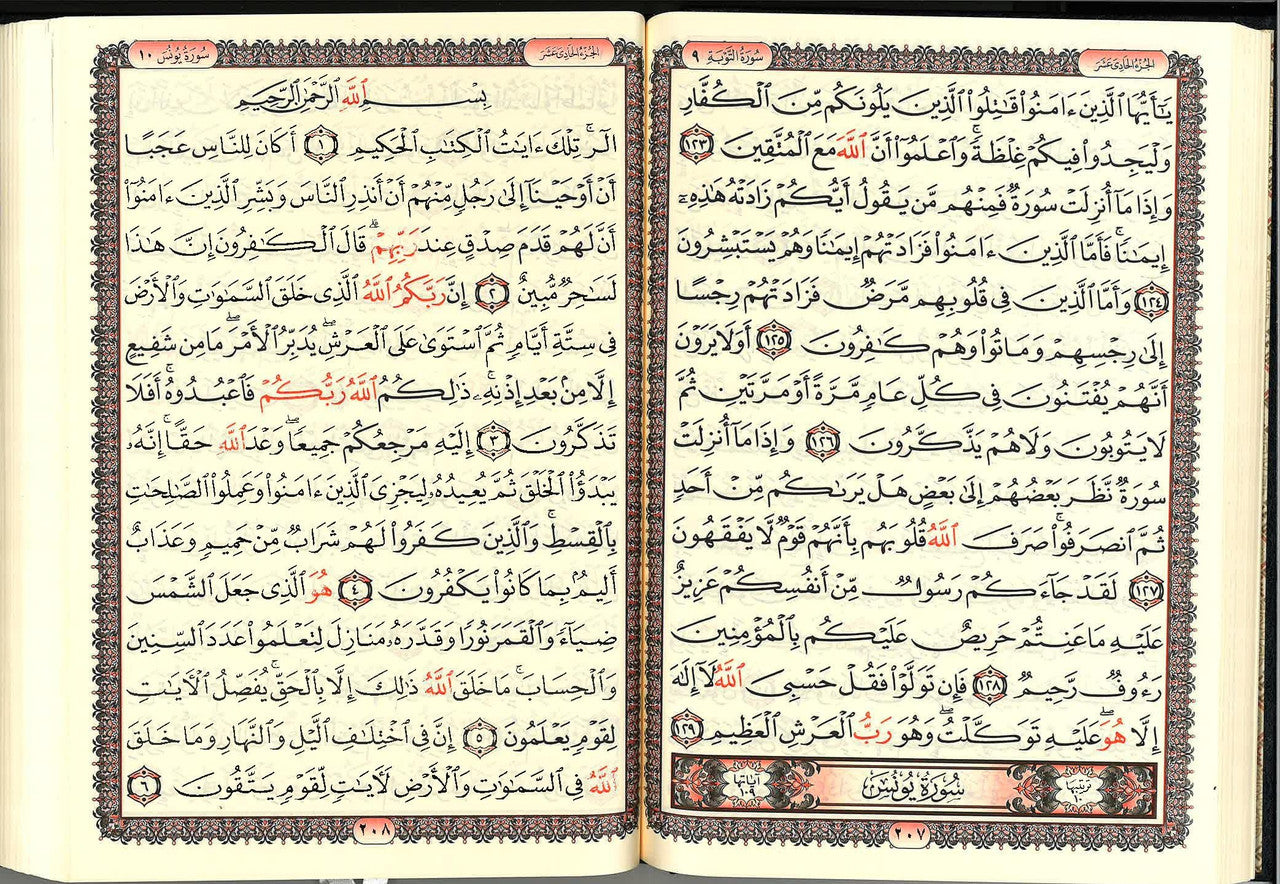 الجزء الحادي عشر
سورة التوبة ٩
يَٰٓأَيُّهَا ٱلَّذِينَ ءَامَنُوا۟ قَٰتِلُوا۟ ٱلَّذِينَ يَلُونَكُم مِّنَ ٱلْكُفَّارِ
وَلْيَجِدُوا۟ فِيكُمْ غِلْظَةً ۚ وَٱعْلَمُوٓا۟ أَنَّ ٱللَّهَ مَعَ ٱلْمُتَّقِينَ ١٢٣
وَإِذَا مَآ أُنزِلَتْ سُورَةٌ فَمِنْهُم مَّن يَقُولُ أَيُّكُمْ زَادَتْهُ هَٰذِهِۦٓ
إِيمَٰنًا ۚ فَأَمَّا ٱلَّذِينَ ءَامَنُوا۟ فَزَادَتْهُمْ إِيمَٰنًا وَهُمْ يَسْتَبْشِرُونَ
١٢٤ وَأَمَّا ٱلَّذِينَ فِى قُلُوبِهِم مَّرَضٌ فَزَادَتْهُمْ رِجْسًا
إِلَىٰ رِجْسِهِمْ وَمَاتُوا۟ وَهُمْ كَٰفِرُونَ ١٢٥ أَوَلَا يَرَوْنَ
أَنَّهُمْ يُفْتَنُونَ فِى كُلِّ عَامٍ مَّرَّةً أَوْ مَرَّتَيْنِ ثُمَّ
لَا يَتُوبُونَ وَلَا هُمْ يَذَّكَّرُونَ ١٢٦ وَإِذَا مَآ أُنزِلَتْ
سُورَةٌ نَّظَرَ بَعْضُهُمْ إِلَىٰ بَعْضٍ هَلْ يَرَىٰكُم مِّنْ أَحَدٍ
ثُمَّ ٱنصَرَفُوا۟ ۚ صَرَفَ ٱللَّهُ قُلُوبَهُم بِأَنَّهُمْ قَوْمٌ لَّا يَفْقَهُونَ
١٢٧ لَقَدْ جَآءَكُمْ رَسُولٌ مِّنْ أَنفُسِكُمْ عَزِيزٌ
عَلَيْهِ مَا عَنِتُّمْ حَرِيصٌ عَلَيْكُم بِٱلْمُؤْمِنِينَ
رَءُوفٌ رَّحِيمٌ ١٢٨ فَإِن تَوَلَّوْا۟ فَقُلْ حَسْبِىَ ٱللَّهُ لَآ إِلَٰهَ
إِلَّا هُوَ ۖ عَلَيْهِ تَوَكَّلْتُ ۖ وَهُوَ رَبُّ ٱلْعَرْشِ ٱلْعَظِيمِ ١٢٩
ترتيبها ١٠ سورة يونس آياتها ١٠٩
٢٠٧
الجزء الحادي عشر
سورة يونس ١٠
بِسْمِ ٱللَّهِ ٱلرَّحْمَٰنِ ٱلرَّحِيمِ
الٓر ۚ تِلْكَ ءَايَٰتُ ٱلْكِتَٰبِ ٱلْحَكِيمِ ١ أَكَانَ لِلنَّاسِ عَجَبًا
أَنْ أَوْحَيْنَآ إِلَىٰ رَجُلٍ مِّنْهُمْ أَنْ أَنذِرِ ٱلنَّاسَ وَبَشِّرِ ٱلَّذِينَ ءَامَنُوٓا۟
أَنَّ لَهُمْ قَدَمَ صِدْقٍ عِندَ رَبِّهِمْ ۗ قَالَ ٱلْكَٰفِرُونَ إِنَّ هَٰذَا
لَسَٰحِرٌ مُّبِينٌ ٢ إِنَّ رَبَّكُمُ ٱللَّهُ ٱلَّذِى خَلَقَ ٱلسَّمَٰوَٰتِ وَٱلْأَرْضَ
فِى سِتَّةِ أَيَّامٍ ثُمَّ ٱسْتَوَىٰ عَلَى ٱلْعَرْشِ ۖ يُدَبِّرُ ٱلْأَمْرَ ۖ مَا مِن شَفِيعٍ
إِلَّا مِنۢ بَعْدِ إِذْنِهِۦ ۚ ذَٰلِكُمُ ٱللَّهُ رَبُّكُمْ فَٱعْبُدُوهُ ۚ أَفَلَا
تَذَكَّرُونَ ٣ إِلَيْهِ مَرْجِعُكُمْ جَمِيعًا ۖ وَعْدَ ٱللَّهِ حَقًّا ۚ إِنَّهُۥ
يَبْدَؤُا۟ ٱلْخَلْقَ ثُمَّ يُعِيدُهُۥ لِيَجْزِىَ ٱلَّذِينَ ءَامَنُوا۟ وَعَمِلُوا۟ ٱلصَّٰلِحَٰتِ
بِٱلْقِسْطِ ۚ وَٱلَّذِينَ كَفَرُوا۟ لَهُمْ شَرَابٌ مِّنْ حَمِيمٍ وَعَذَابٌ
أَلِيمٌۢ بِمَا كَانُوا۟ يَكْفُرُونَ ٤ هُوَ ٱلَّذِى جَعَلَ ٱلشَّمْسَ
ضِيَآءً وَٱلْقَمَرَ نُورًا وَقَدَّرَهُۥ مَنَازِلَ لِتَعْلَمُوا۟ عَدَدَ ٱلسِّنِينَ
وَٱلْحِسَابَ ۚ مَا خَلَقَ ٱللَّهُ ذَٰلِكَ إِلَّا بِٱلْحَقِّ ۚ يُفَصِّلُ ٱلْءَايَٰتِ
لِقَوْمٍ يَعْلَمُونَ ٥ إِنَّ فِى ٱخْتِلَٰفِ ٱلَّيْلِ وَٱلنَّهَارِ وَمَا خَلَقَ
ٱللَّهُ فِى ٱلسَّمَٰوَٰتِ وَٱلْأَرْضِ لَءَايَٰتٍ لِّقَوْمٍ يَتَّقُونَ ٦
٢٠٨